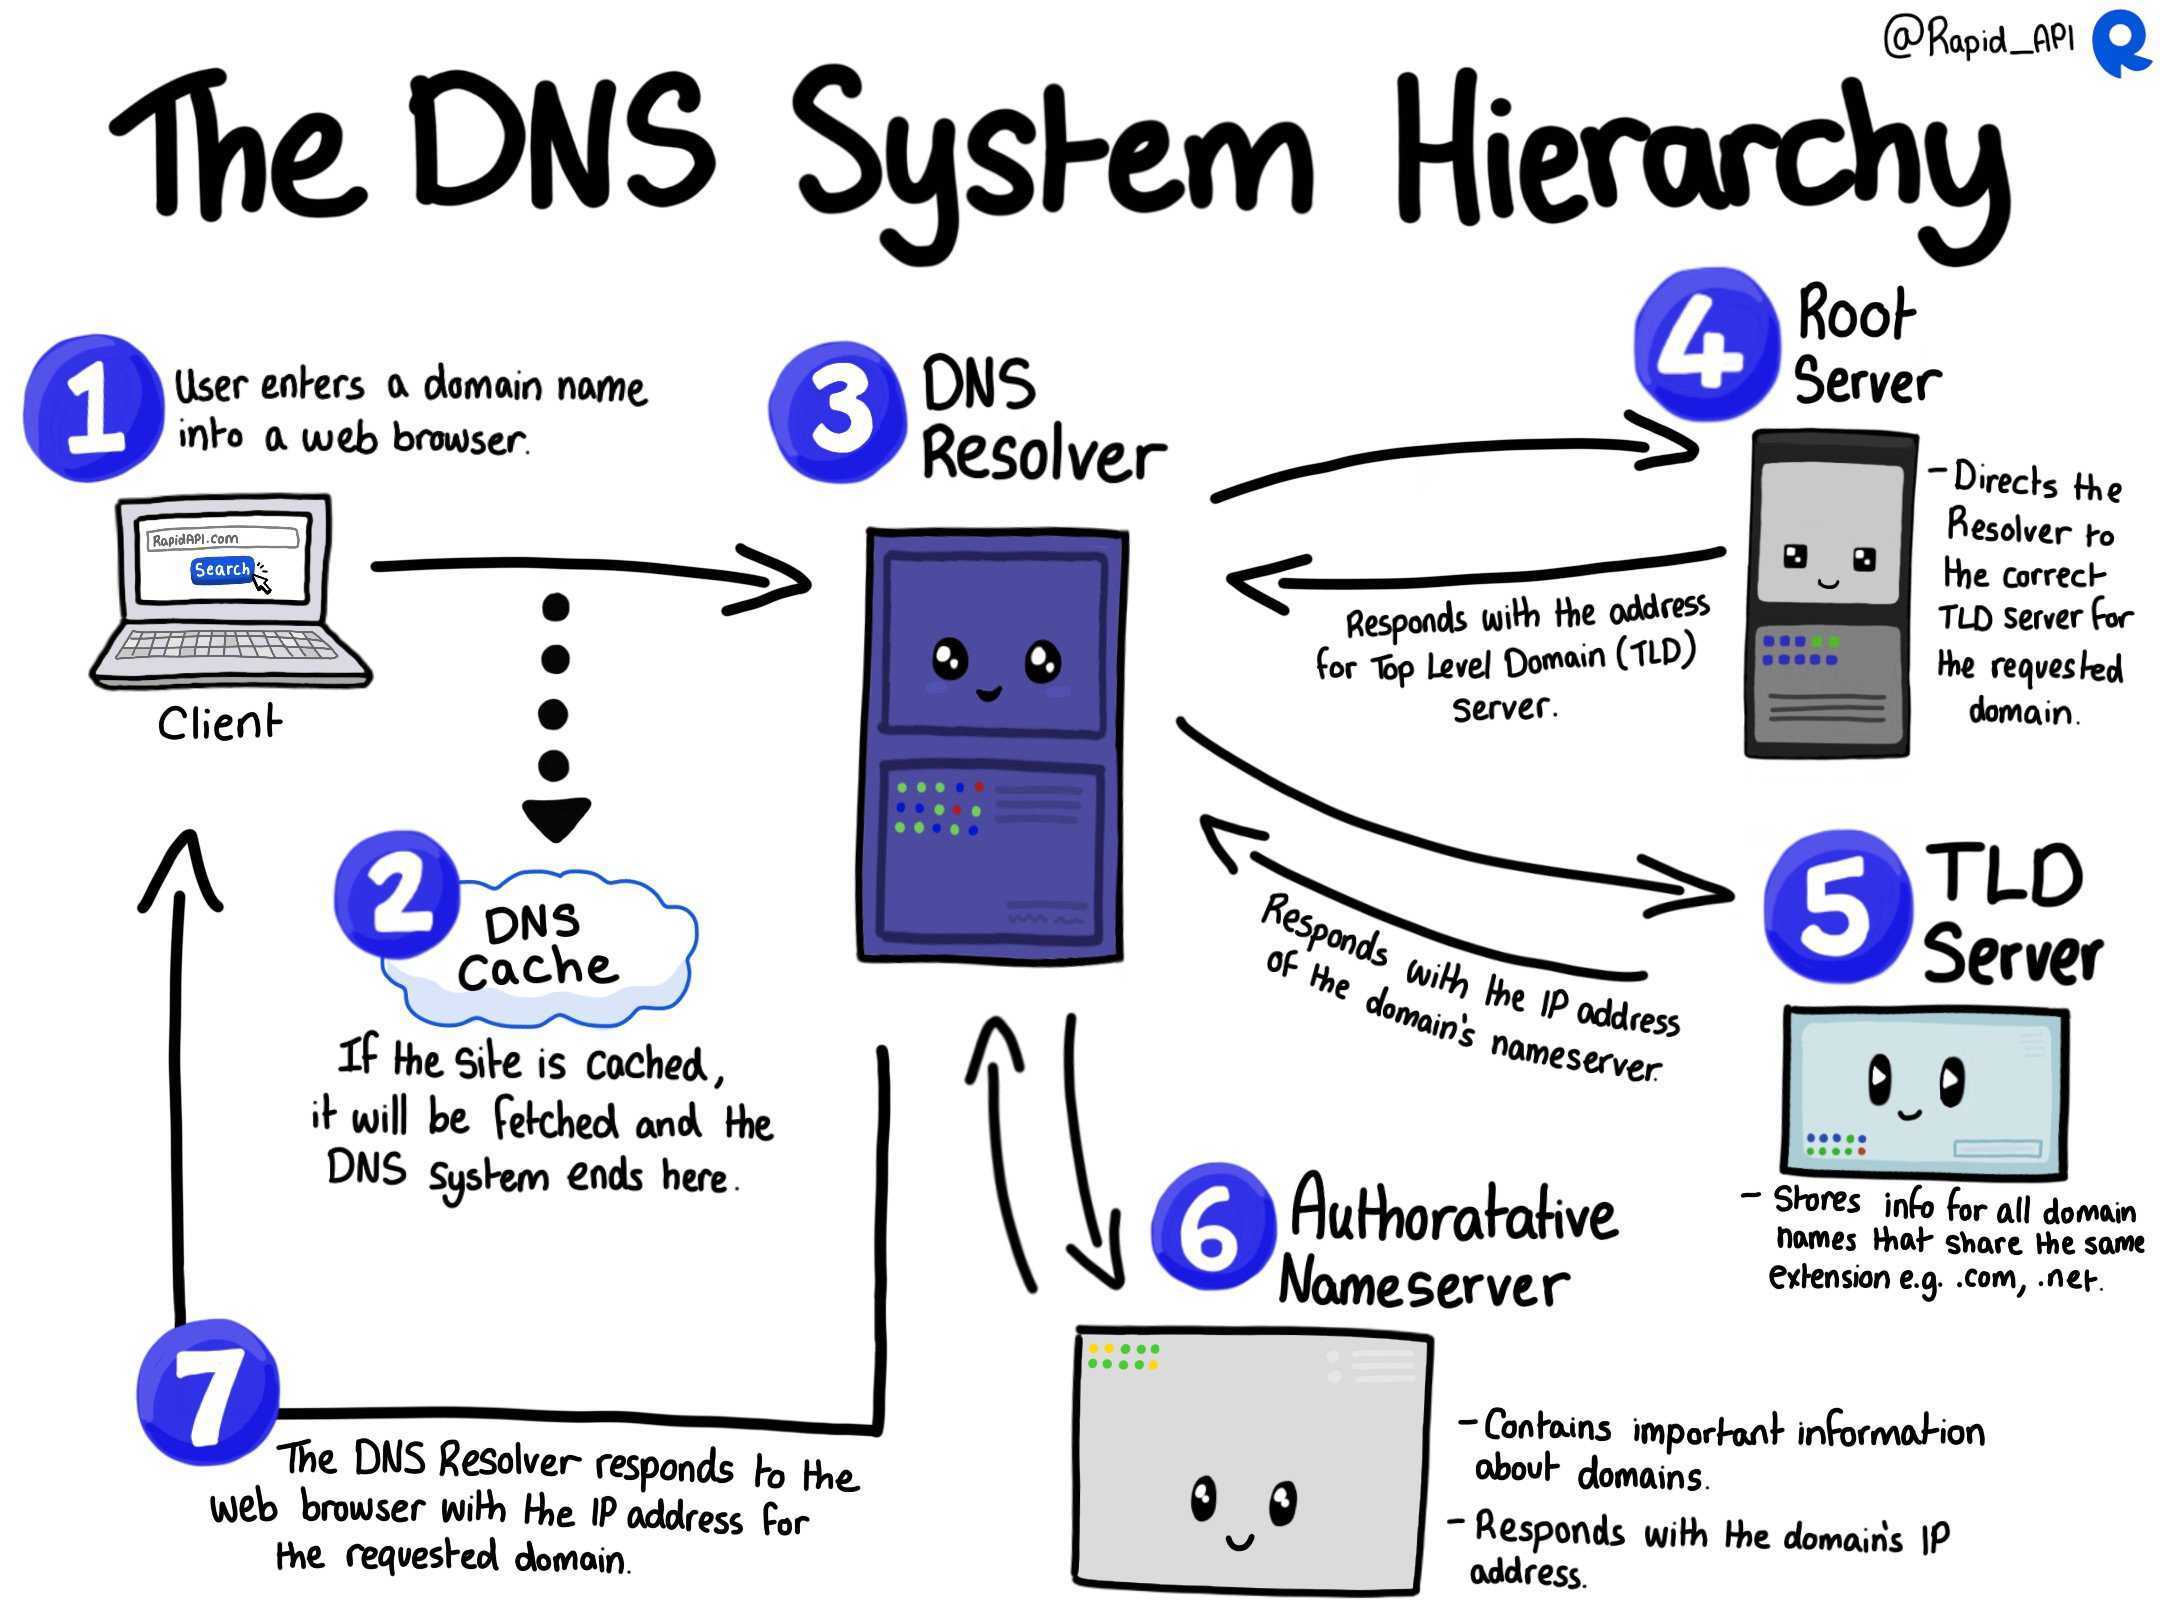 @Rapid_API
The DNS System Hierarchy
1
User enters a domain name
into a web browser.
RapidAPI.com
Search
Client
2
DNS
Cache
If the site is cached,
it will be fetched and the
DNS system ends here.
3
DNS
Resolver
4
Root
Server
- Directs the
Resolver to
the correct
TLD server for
the requested
domain.
Responds with the address
for Top Level Domain (TLD)
server.
5
TLD
Server
Responds with the IP address
of the domain's nameserver.
- Stores info for all domain
names that share the same
extension e.g. .com, .net.
6
Authoratative
Nameserver
- Contains important information
about domains.
- Responds with the domain's IP
address.
7
The DNS Resolver responds to the
web browser with the IP address for
the requested domain.